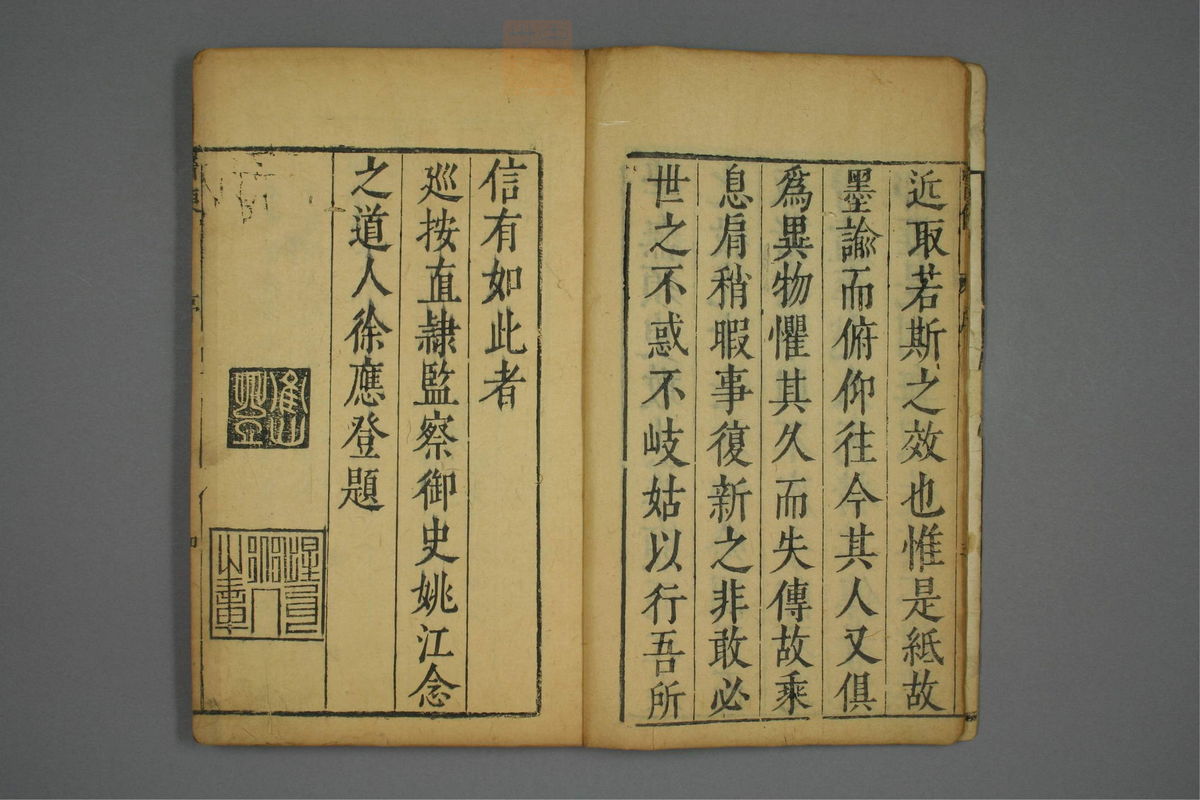 近取若斯之效也惟是紙故
墨諭而俯仰往今其人又俱
爲異物懼其久而失傳故乘
息肩稍暇事復新之非敢必
世之不惑不岐姑以行吾所
信有如此者
廵按直隷監察御史姚江念
之道人徐應登題